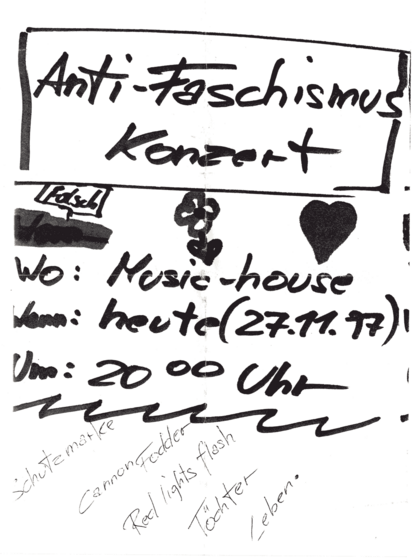 Anti-Faschismus
Konzert
Falsch
Wo: Music-house
Wann: heute (27.11.97)
Um: 20 00 Uhr
Schutzmarke
Cannon Fodder
Red lights flash
Töchter
Leben.